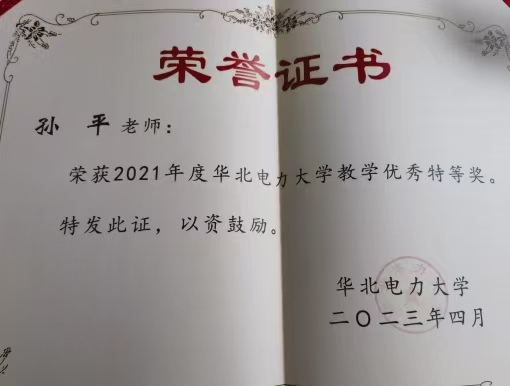 荣誉证书
孙 平 老师：
荣获2021年度华北电力大学教学优秀特等奖。
特发此证，以资鼓励。
华北电力大学
二〇二三年四月